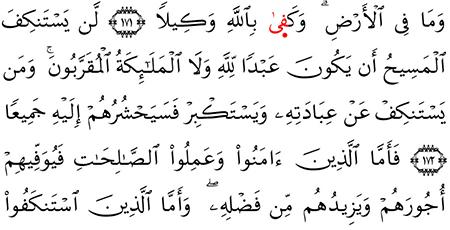 وَمَا فِى ٱلْأَرْضِ ۗ وَكَفِىٰ بِٱللَّهِ وَكِيلًا ﴿١٧١﴾ لَّن يَسْتَنكِفَ
ٱلْمَسِيحُ أَن يَكُونَ عَبْدًا لِّلَّهِ وَلَا ٱلْمَلَـٰٓئِكَةُ ٱلْمُقَرَّبُونَ ۚ وَمَن
يَسْتَنكِفْ عَنْ عِبَادَتِهِۦ وَيَسْتَكْبِرْ فَسَيَحْشُرُهُمْ إِلَيْهِ جَمِيعًا
﴿١٧٢﴾ فَأَمَّا ٱلَّذِينَ ءَامَنُوا۟ وَعَمِلُوا۟ ٱلصَّـٰلِحَـٰتِ فَيُوَفِّيهِمْ
أُجُورَهُمْ وَيَزِيدُهُم مِّن فَضْلِهِۦ ۖ وَأَمَّا ٱلَّذِينَ ٱسْتَنكَفُوا۟